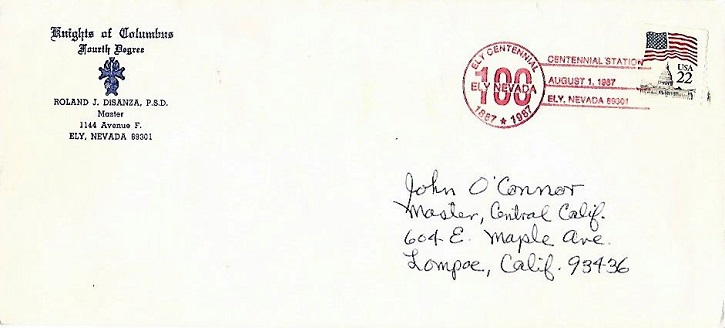 Knights of Columbus
Fourth Degree
ROLAND J. DISANZA, P.S.D.
Master
1144 Avenue F.
ELY, NEVADA 89301
ELY CENTENNIAL
100
ELY NEVADA
1887 ★ 1987
CENTENNIAL STATION
AUGUST 1, 1987
ELY, NEVADA 89301
USA
22
John O'Connor
Master, Central Calif.
604 E. Maple Ave.
Lompoc, Calif. 93436